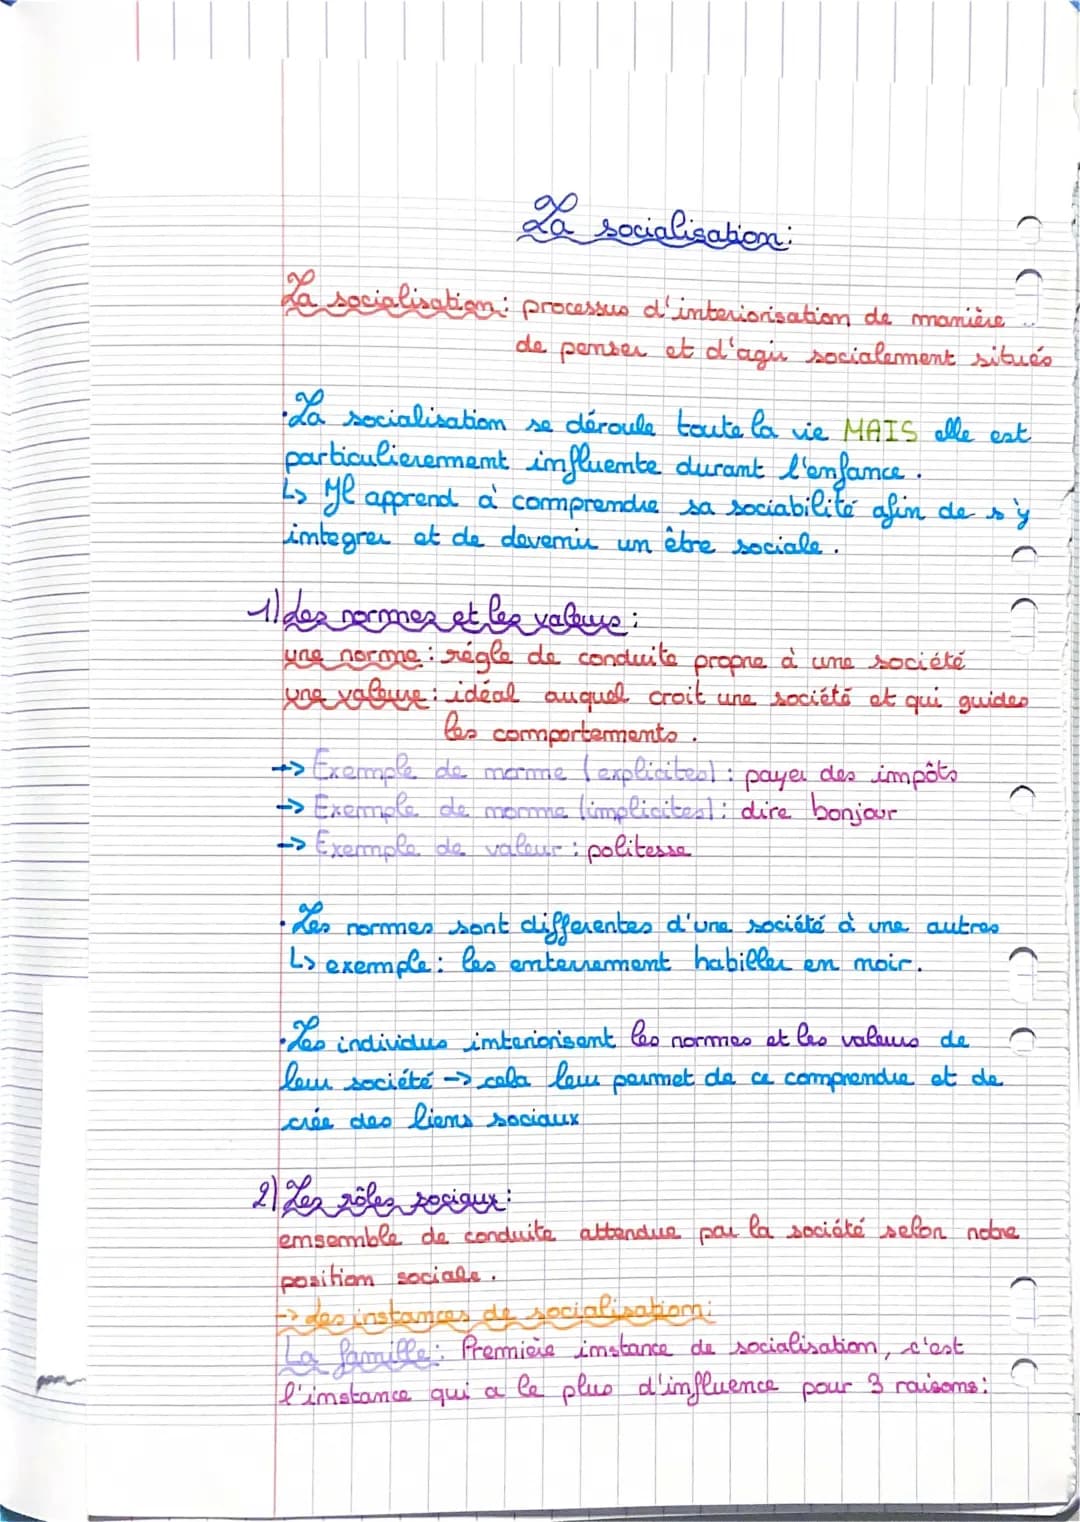 La socialisation:
La socialisation: processus d'interiorisation de manière
de penser et d'agir socialement situés
·La socialisation se déroule toute la vie MAIS elle est
particulierement influente durant l'enfance.
↳ Il apprend à comprendre sa sociabilité afin de s'y
integrer et de devenir un être sociale.
1) des normes et les valeurs:
une norme: régle de conduite propre à une société
une valeure: idéal auquel croit une société et qui guides
les comportements.
-> Exemple de norme (explicites): payer des impôts
-> Exemple de norme (implicites): dire bonjour
-> Exemple de valeur: politesse
· Les normes sont differentes d'une société à une autres
↳ exemple: les enterrement habiller en noir.
·Les individus interiorisent les normes et les valeurs de
leur société -> cela leur permet de ce comprendre et de
crée des liens sociaux
2) Les rôles sociaux:
ensemble de conduite attendue par la société selon notre
position sociale.
-> des instances de socialisation:
La famille: Première instance de socialisation, c'est
l'instance qui a le plus d'influence pour 3 raisons: